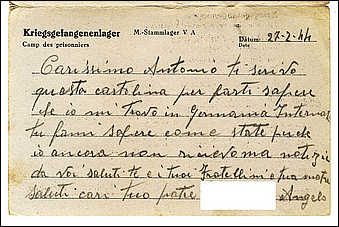 Kriegsgefangenenlager M.-Stammlager V A
Camp des prisonniers
Datum: 27-2-44
Date
Carissimo Antonio ti scrivo
questa cartolina per farti sapere
che io mi trovo in Germania Internato
tu fammi sapere come state perche
io ancora non ricevo ma notizie
da voi saluti te e i tuoi Fratellini e tua matre
saluti cari tuo patre Angelo